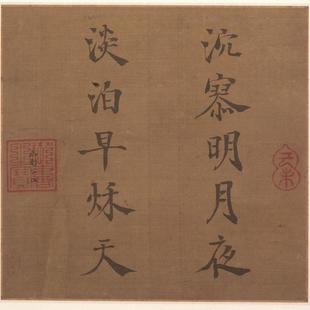 沉寥明月夜
淡泊早秌天